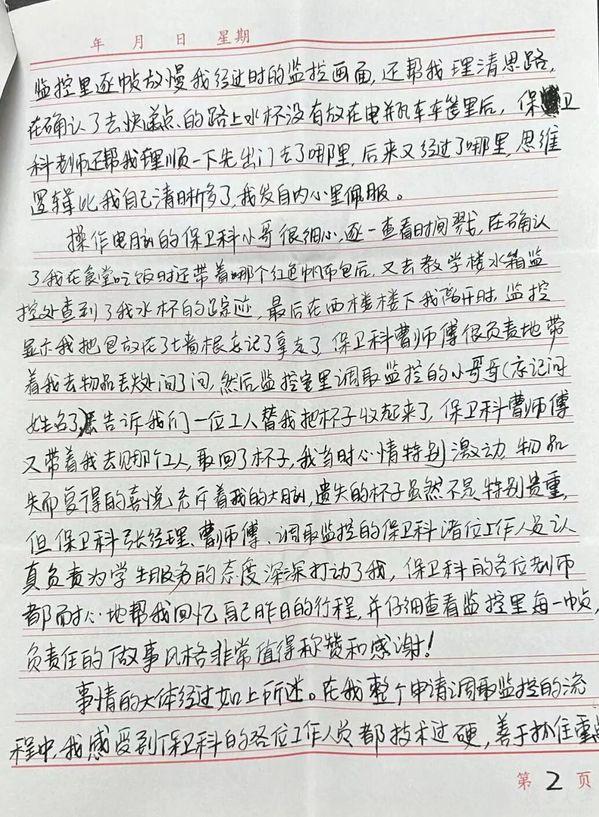 年 月 日 星期
监控里逐帧放慢我经过时的监控画面,还帮我理清思路,
在确认了去快递点的路上水杯没有放在电并瓦车车筐里后,保卫
科老师还帮我理顺一下先出门去了哪里,后来又经过了哪里,思维
逻辑比我自己清晰多了,我发自内心里佩服。
操作电脑的保卫科小哥很细心,逐一查看时间戳,在确认
了我在食堂吃饭时还带着哪个红色帆布包后,又去教学楼水箱监
控处查到了我水杯的踪迹,最后在西楼楼下我离开时,监控
显示我把包放在了墙根忘记了拿走了,保卫科曹师傅很负责地带
着我去物品丢失处问了问,然后监控室里调取监控的小哥哥(忘记问
姓名了)告诉我们一位工人替我把杯子收起来了,保卫科曹师傅
又带着我去见那个工人,取回了杯子,我当时心情特别激动,物品
失而复得的喜悦充斥着我的大脑,遗失的杯子虽然不是特别贵重,
但保卫科张经理、曹师傅、调取监控的保卫科诸位工作人员认
真负责为学生服务的态度深深打动了我,保卫科的各位老师
都耐心地帮我回忆自己昨日的行程,并仔细查看监控里每一帧,
负责任的做事风格非常值得称赞和感谢!
事情的大体经过如上所述。在我整个申请调取监控的流
程中,我感受到保卫科的各位工作人员都技术过硬,善于抓住重点
第 2 页